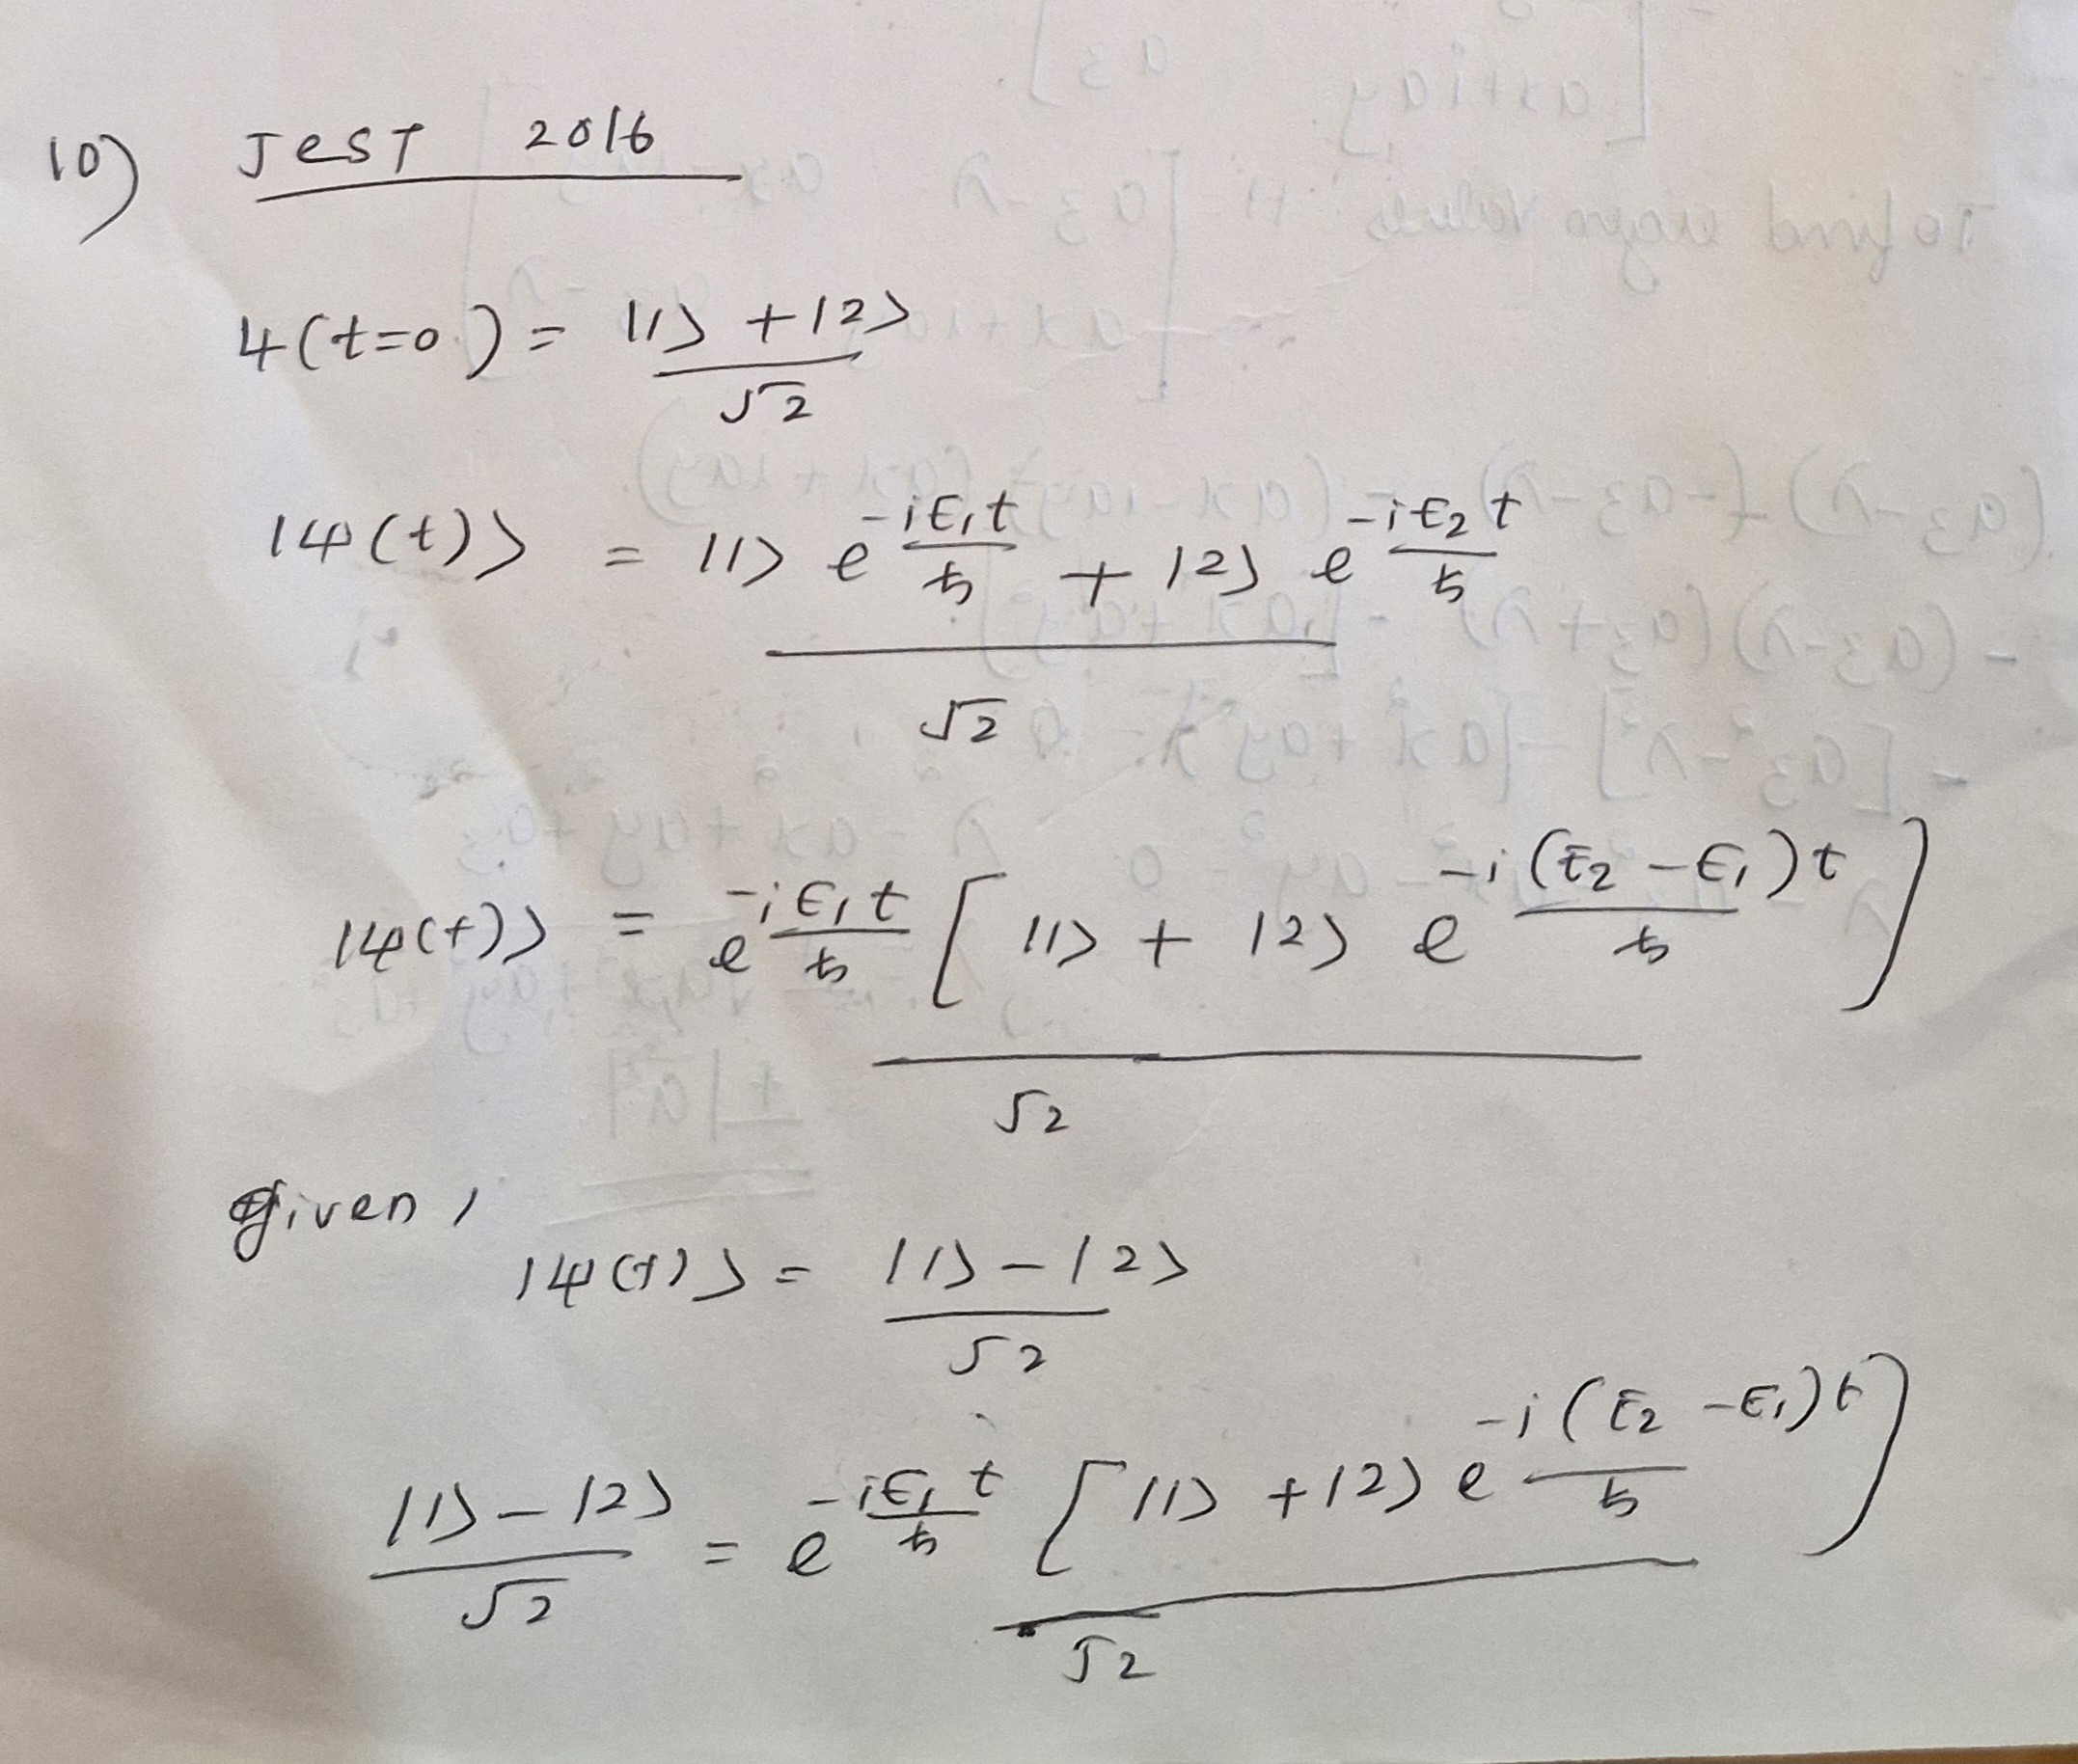 10) JEST 2016
ψ(t=0) = |1> + |2>
√2
|ψ(t)> = |1> e^{-iE₁t/ħ} + |2> e^{-iE₂t/ħ}
√2
|ψ(t)> = e^{-iE₁t/ħ} [ |1> + |2> e^{-i(E₂-E₁)t/ħ} ]
√2
given,
|ψ(t)> = |1> - |2>
√2
|1> - |2> / √2 = e^{-iE₁t/ħ} [ |1> + |2> e^{-i(E₂-E₁)t/ħ} ]
√2